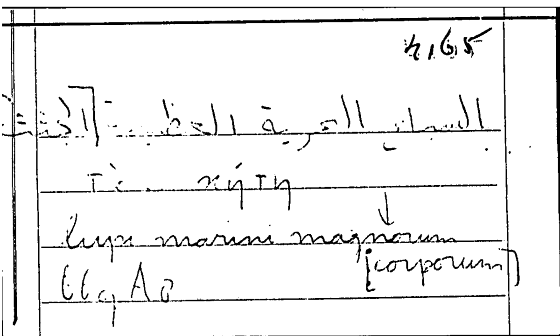 السباع البحرية العظيمة [الجثث
τὰ κήτη
lupi marini magnorum
[corporum]